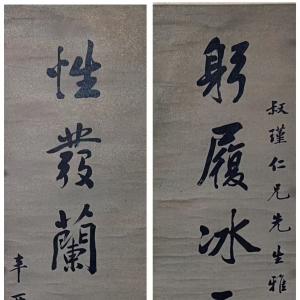 叔瑾仁兄先生雅
躬履冰
性發蘭
辛